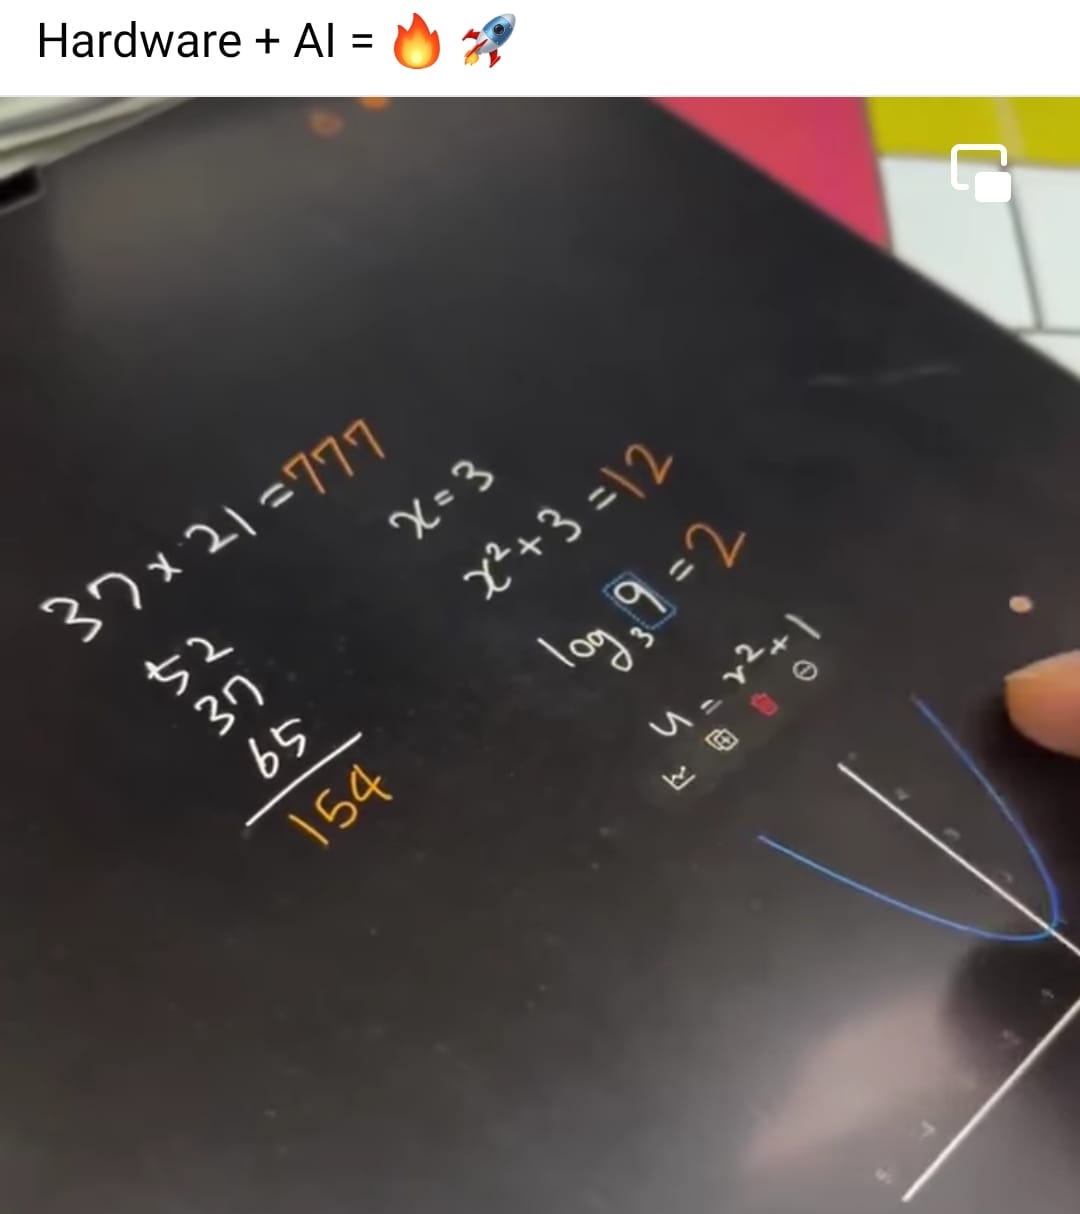 Hardware + AI = 🔥 🚀
37 x 21 = 777
52
37
65
154
x = 3
x² + 3 = 12
log₃ 9 = 2
y = x² + 1